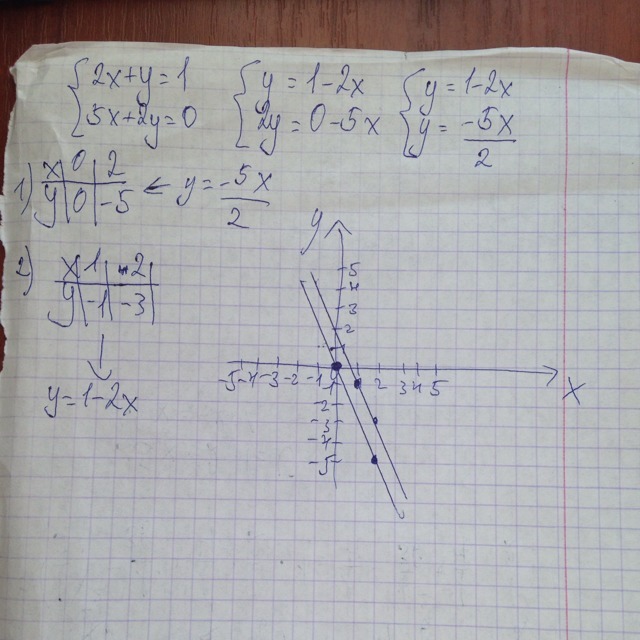 {2x+y=1 {y=1-2x {y=1-2x
{5x+2y=0 {2y=0-5x {y=-5x/2
1) x|0|2
y|0|-5 ← y=-5x/2
2) x|1|2
y|-1|-3
↓
y=1-2x
y
5
4
3
2
-5 -4 -3 -2 -1 1 2 3 4 5 x
-2
-3
-4
-5